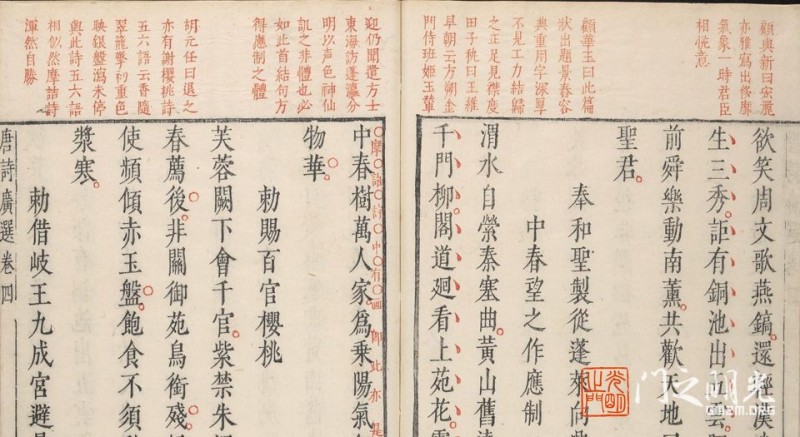 顧與新曰宏麗
亦雅寫出
氣象一時君臣
相悅意
顧華玉曰此篇
狀出題景春容
典重用字深厚
不見工力結歸
之正足見襟度
田子秇曰王維
早朝云方朔金
門侍班姬玉輦
欲笑周文歌燕鎬。還輕漢
生三秀。詎有銅池出五雲
前舜樂動南薰。共歡天地
聖君。
奉和聖製從蓬萊向
中春望之作應制
渭水自縈秦塞曲。黃山舊
千門柳。閣道廻看上苑花。
迎仍聞遣方士
東海訪蓬瀛分
明以声色神仙
譏之非體也必
如此首結句方
得應制之體
胡元任曰退之
亦有謝櫻桃詩
五六語云香隨
翠籠擎初重色
映銀盤瀉未停
與此詩五六語
相似然摩詰詩
渾然自勝
摩詰詩中有画即此亦是
中春樹萬人家。爲乘陽氣
物華。
勅賜百官櫻桃
芙蓉闕下會千官。紫禁朱
春薦後。非關御苑鳥銜殘。
使頻傾赤玉盤。飽食不須
漿寒。
勅借岐王九成宮避
唐詩廣選卷四
光明之門
GMZM.ORG